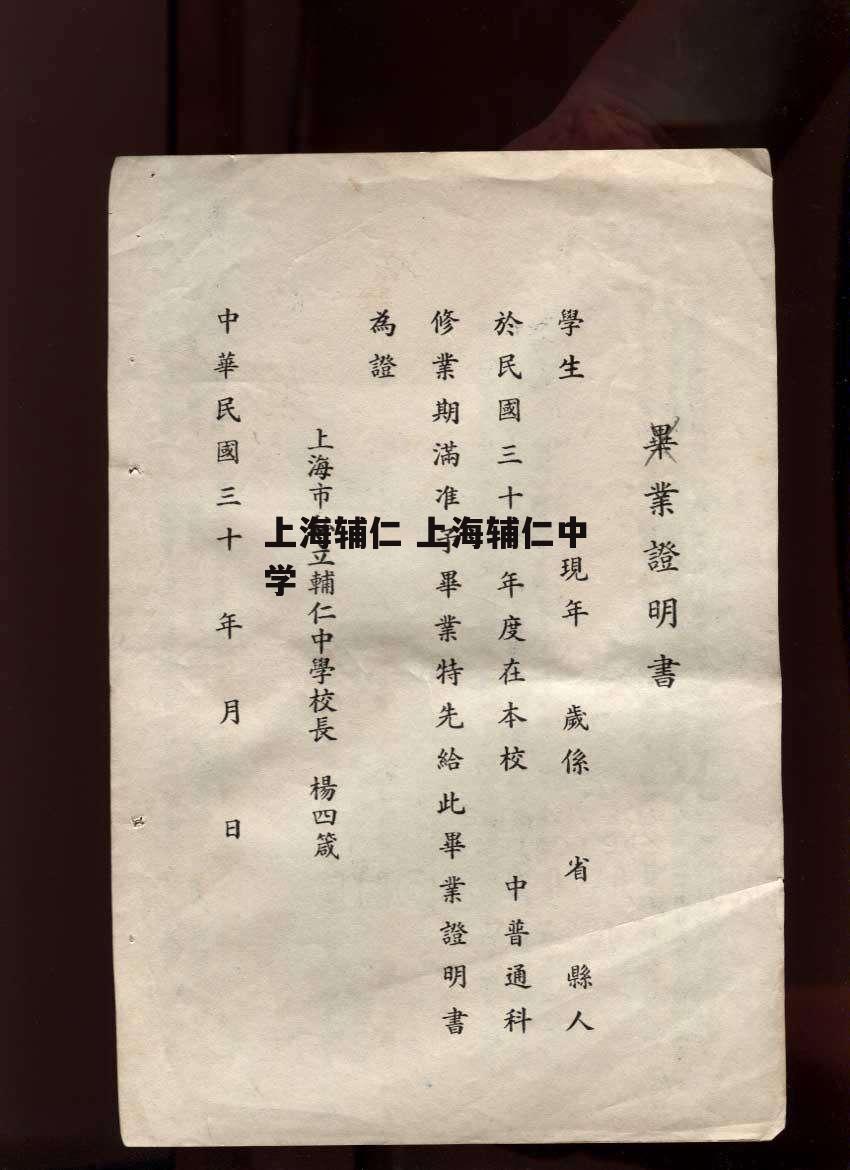 畢業證明書
學生 現年 歲係 省 縣人
於民國三十 年度在本校 中普通科
修業期滿准予畢業特先給此畢業證明書
為證
上海市 立輔仁中學校長 楊四箴
中華民國三十 年 月 日
上海辅仁 上海辅仁中
学